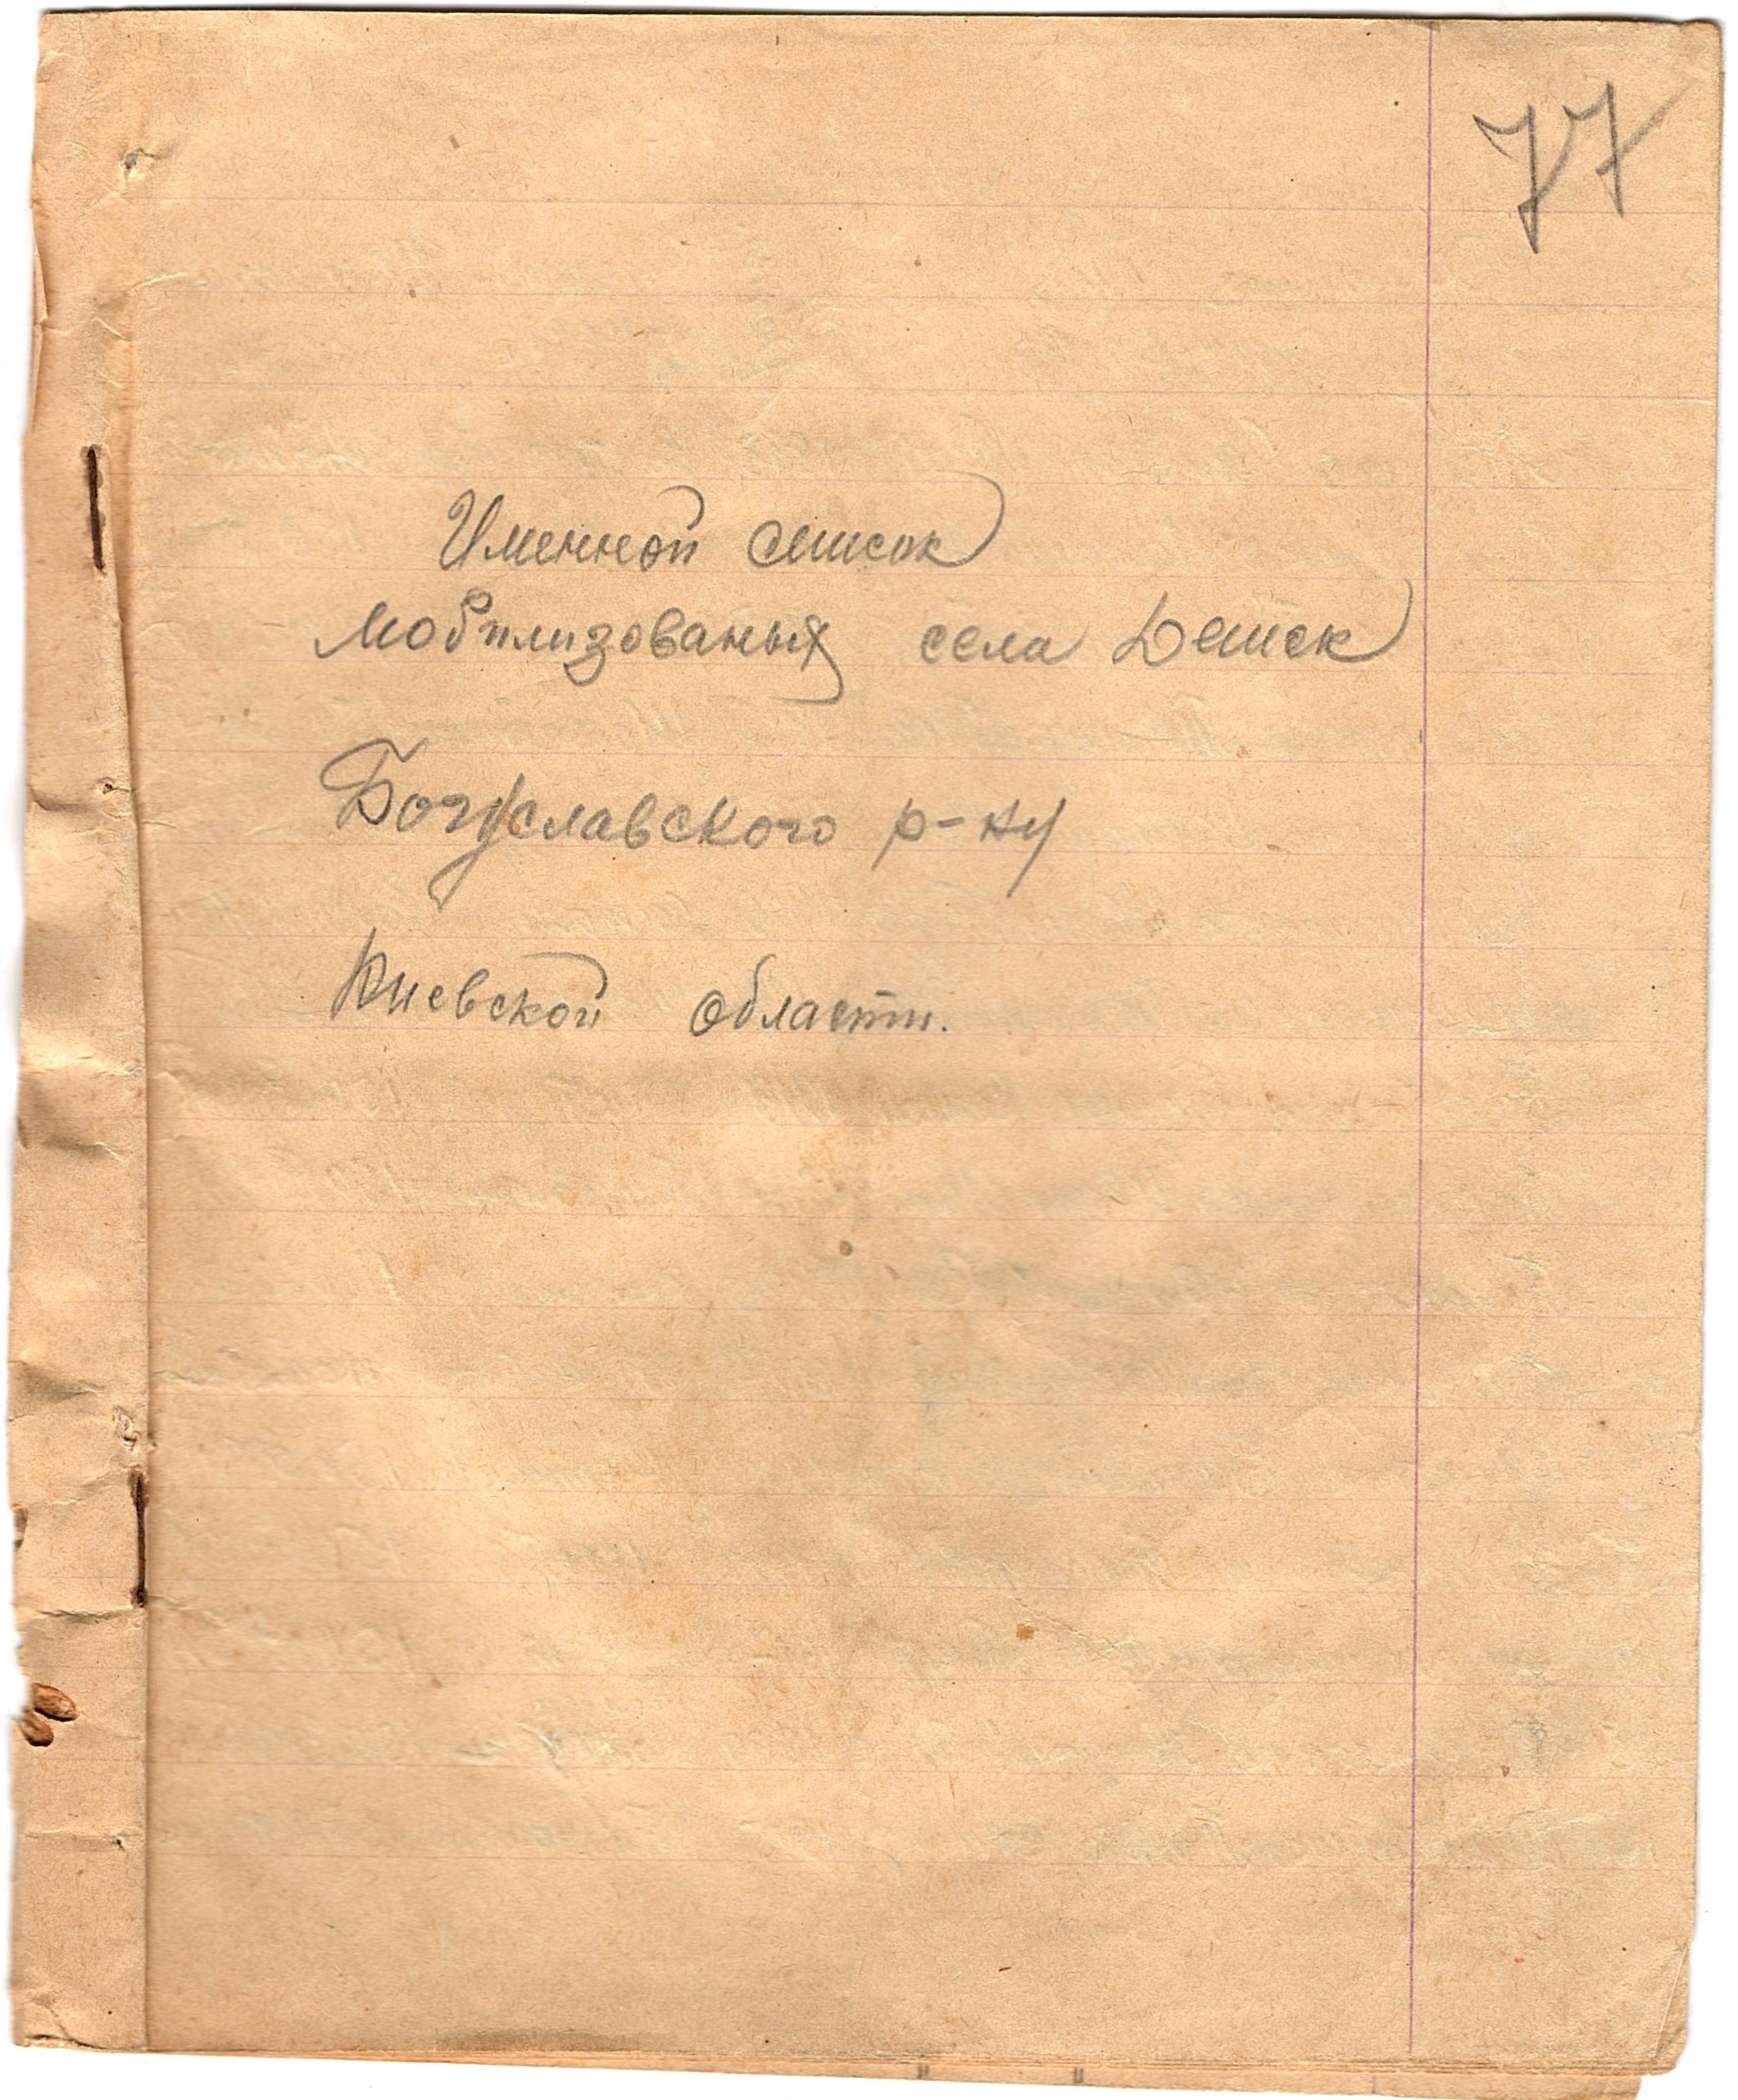 77
Именной список
мобилизованых села Дешек
Богуславского р-ну
Киевской области.